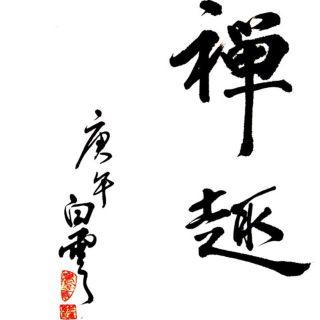 禪趣
庚午
白雲